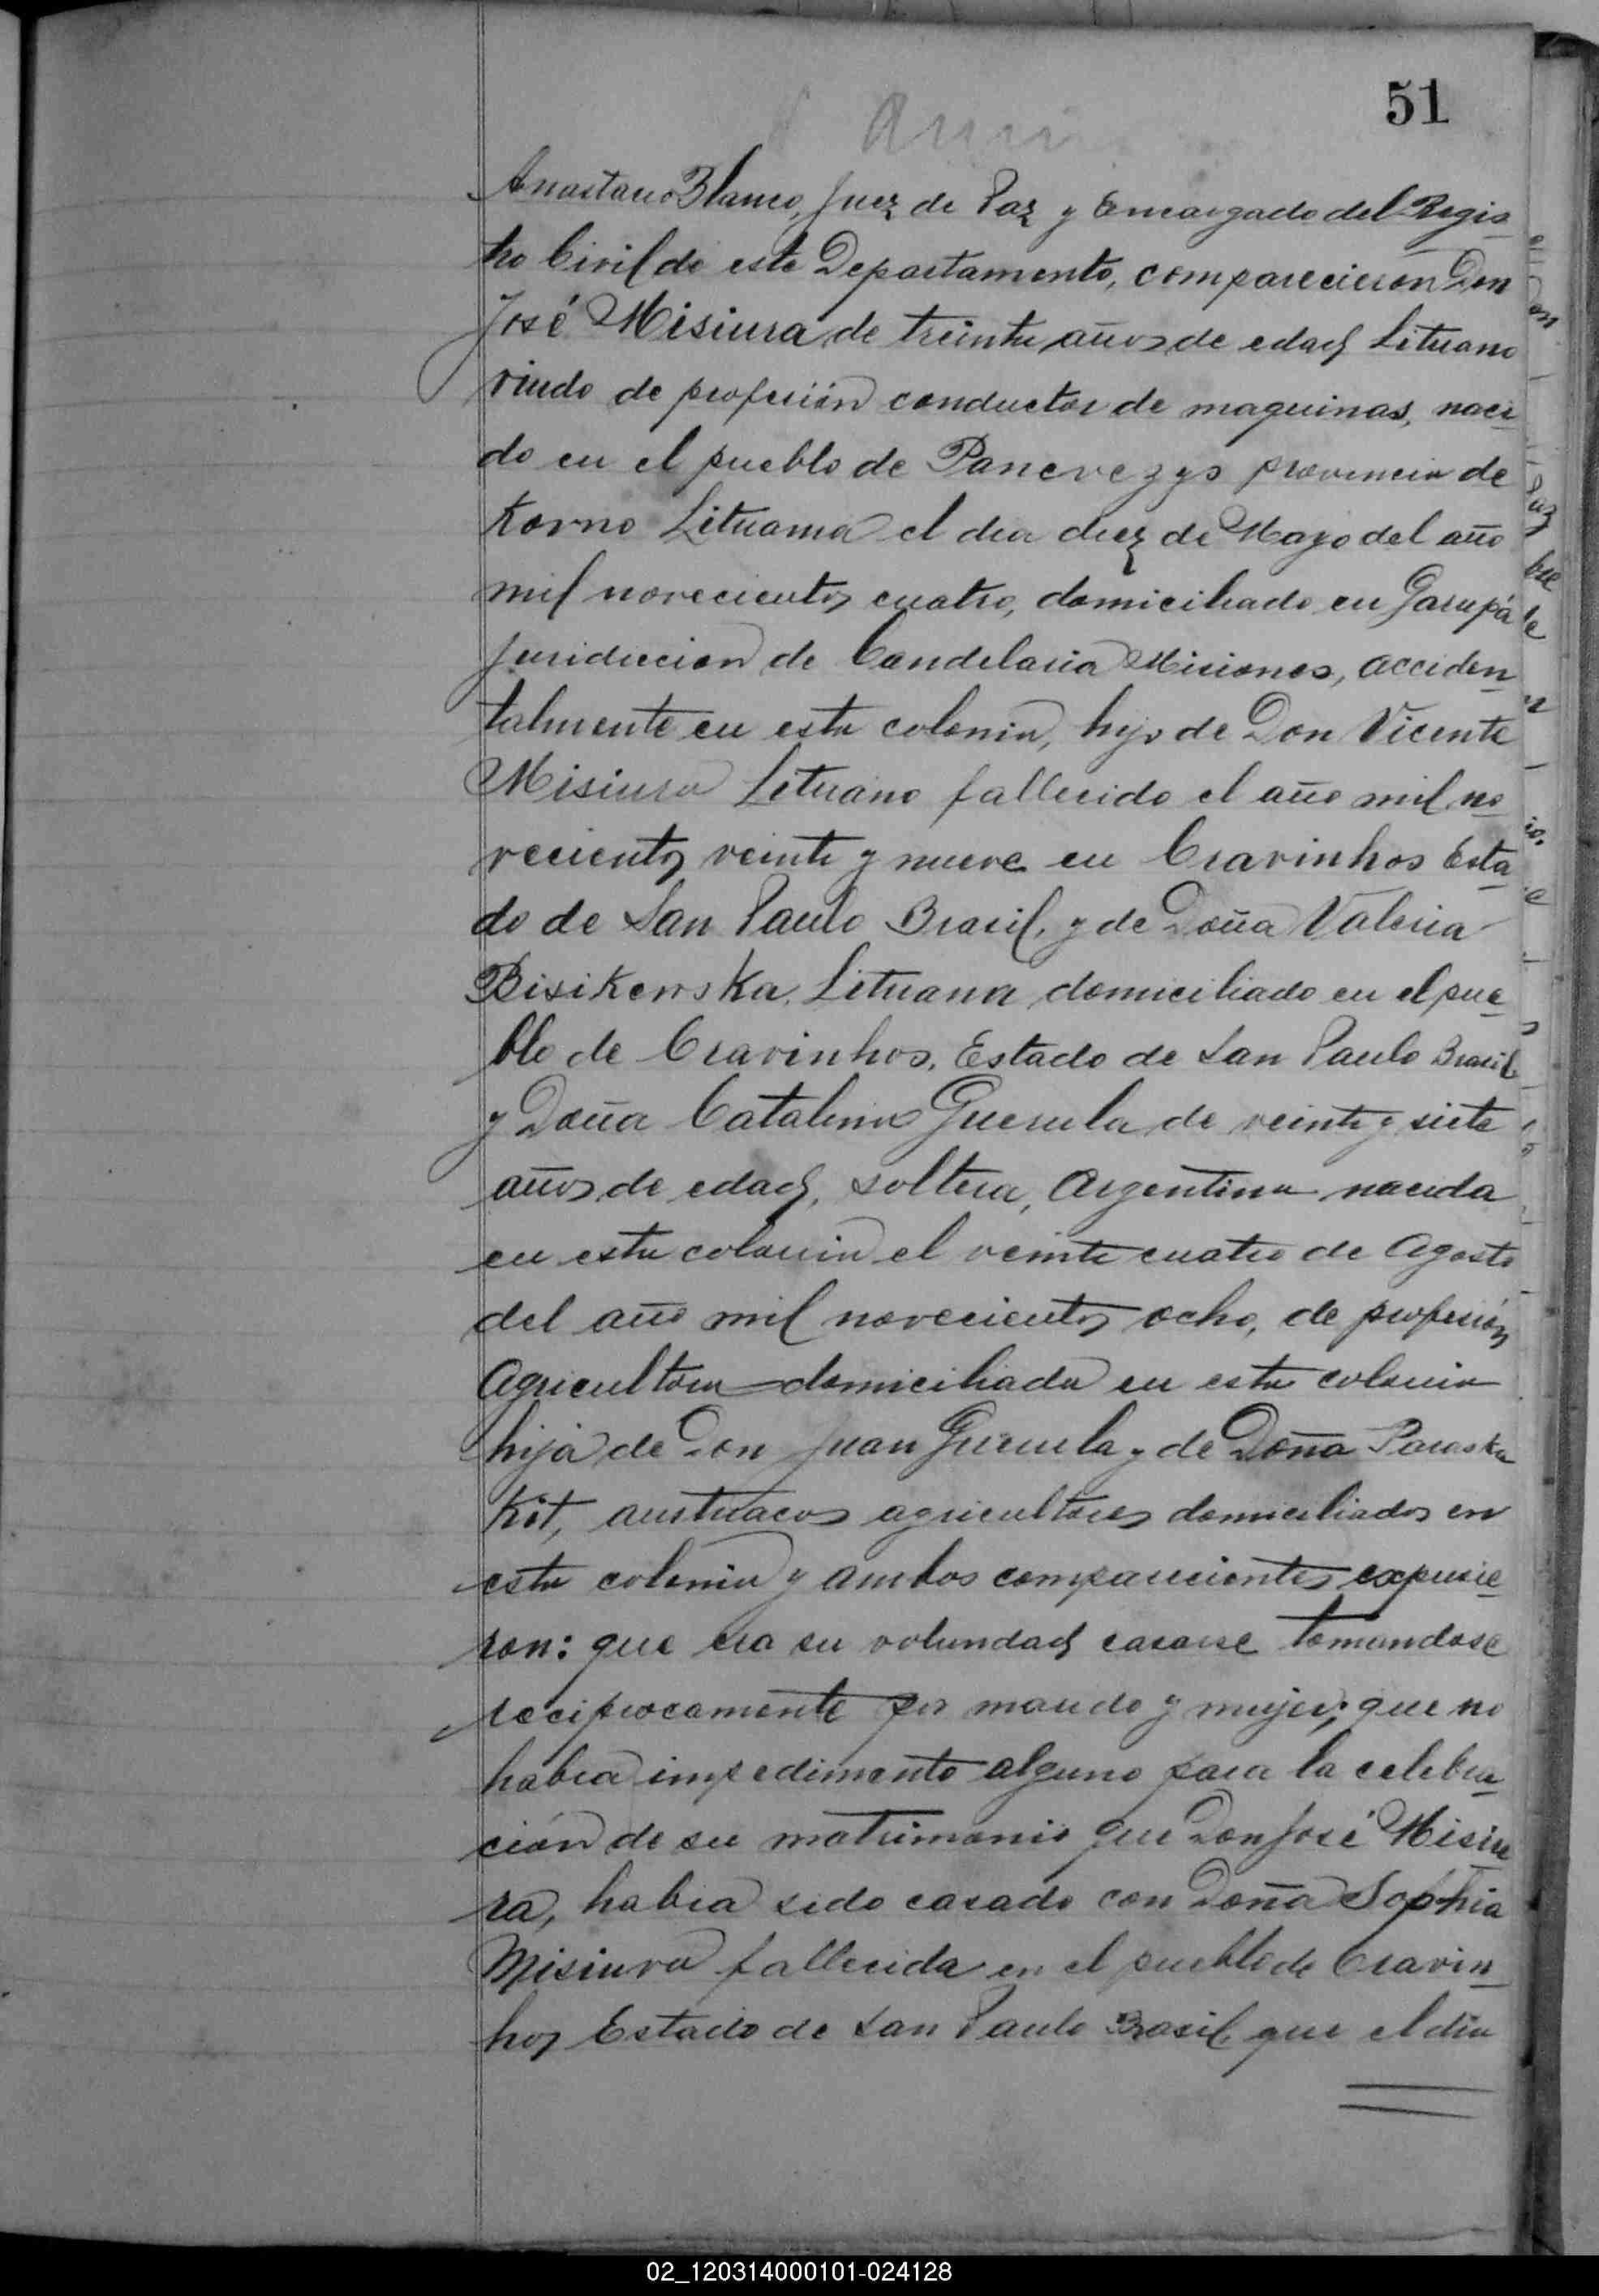 51
Anastacio Blanco, Juez de Paz y Encargado del Regis
tro Civil de este Departamento, comparecieron Don
José Misiura de treinta años de edad Lituano
viudo de profesión conductor de maquinas, naci
do en el pueblo de Panevezys provincia de
Kovno Lituania el dia diez de Mayo del año
mil novecientos cuatro, domiciliado en Garupá
juridiccion de Candelaria Misiones, acciden
talmente en esta colonia, hijo de Don Vicente
Misiura Lituano fallecido el año mil no
vecientos veinte y nueve en Cravinhos Esta
do de San Paulo Brasil, y de Doña Valeria
Bisikerska, Lituana domiciliado en el pue
blo de Cravinhos, Estado de San Paulo Brasil
y Doña Catalina Guerula de veinte y siete
años de edad, soltera, Argentina nacida
en esta colonia el veinte cuatro de Agosto
del año mil novecientos ocho, de profesión
Agricultora domiciliada en esta colonia
hija de Don Juan Guerula y de Doña Paraska
Kit, austriacos agricultores domiciliados en
esta colonia y ambos comparecientes expusie
ron: que era su voluntad casarse tomandose
reciprocamente por marido y mujer; que no
habia impedimento alguno para la celebra
ción de su matrimonio que Don José Misiu
ra, habia sido casado con Doña Sophia
Misiura fallecida en el pueblo de Cravin
hos Estado de San Paulo Brasil que el dia
02_120314000101-024128